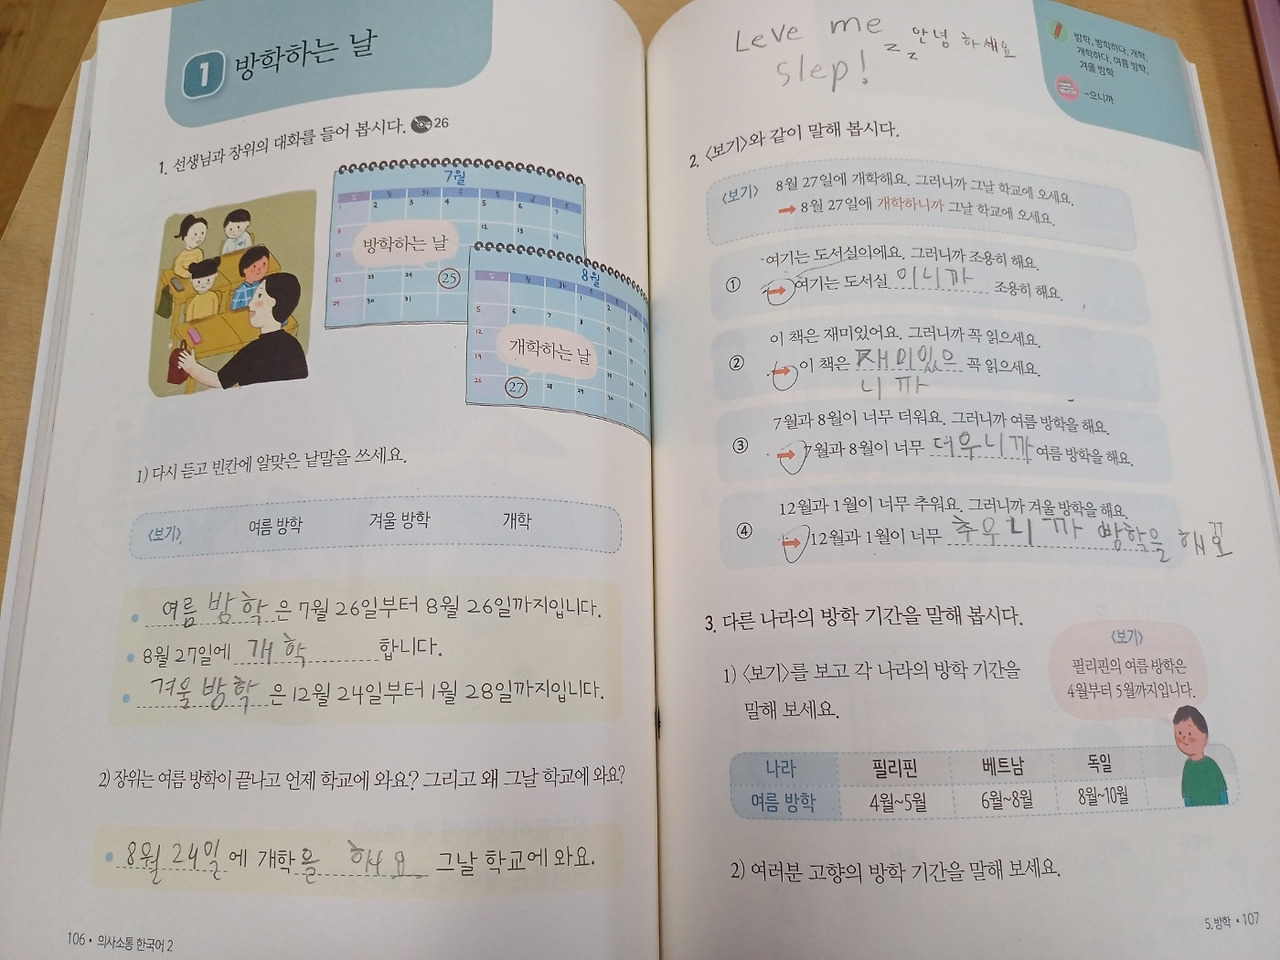 1 방학하는 날
1. 선생님과 장위의 대화를 들어 봅시다. 26
7월
방학하는 날
25
8월
개학하는 날
27
1) 다시 듣고 빈칸에 알맞은 낱말을 쓰세요.
〈보기〉 여름 방학 겨울 방학 개학
• 여름 방학은 7월 26일부터 8월 26일까지입니다.
• 8월 27일에 개학 합니다.
• 겨울 방학은 12월 24일부터 1월 28일까지입니다.
2) 장위는 여름 방학이 끝나고 언제 학교에 와요? 그리고 왜 그날 학교에 와요?
• 8월 24일에 개학을 해요 그날 학교에 와요.
106 • 의사소통 한국어 2
Leve me
slep!
z z 안녕 하세요
방학, 방학하다, 개학,
개학하다, 여름 방학,
겨울 방학
-으니까
2. 〈보기〉와 같이 말해 봅시다.
〈보기〉 8월 27일에 개학해요. 그러니까 그날 학교에 오세요.
➡ 8월 27일에 개학하니까 그날 학교에 오세요.
① 여기는 도서실이에요. 그러니까 조용히 해요.
➡ 여기는 도서실 이니까 조용히 해요.
② 이 책은 재미있어요. 그러니까 꼭 읽으세요.
➡ 이 책은 재미있으 꼭 읽으세요.
니까
③ 7월과 8월이 너무 더워요. 그러니까 여름 방학을 해요.
➡ 7월과 8월이 너무 더우니까 여름 방학을 해요.
④ 12월과 1월이 너무 추워요. 그러니까 겨울 방학을 해요.
➡ 12월과 1월이 너무 추우니까 방학을 해요
3. 다른 나라의 방학 기간을 말해 봅시다.
1) 〈보기〉를 보고 각 나라의 방학 기간을
말해 보세요.
〈보기〉
필리핀의 여름 방학은
4월부터 5월까지입니다.
나라 필리핀 베트남 독일
여름 방학 4월~5월 6월~8월 8월~10월
2) 여러분 고향의 방학 기간을 말해 보세요.
5. 방학 • 107